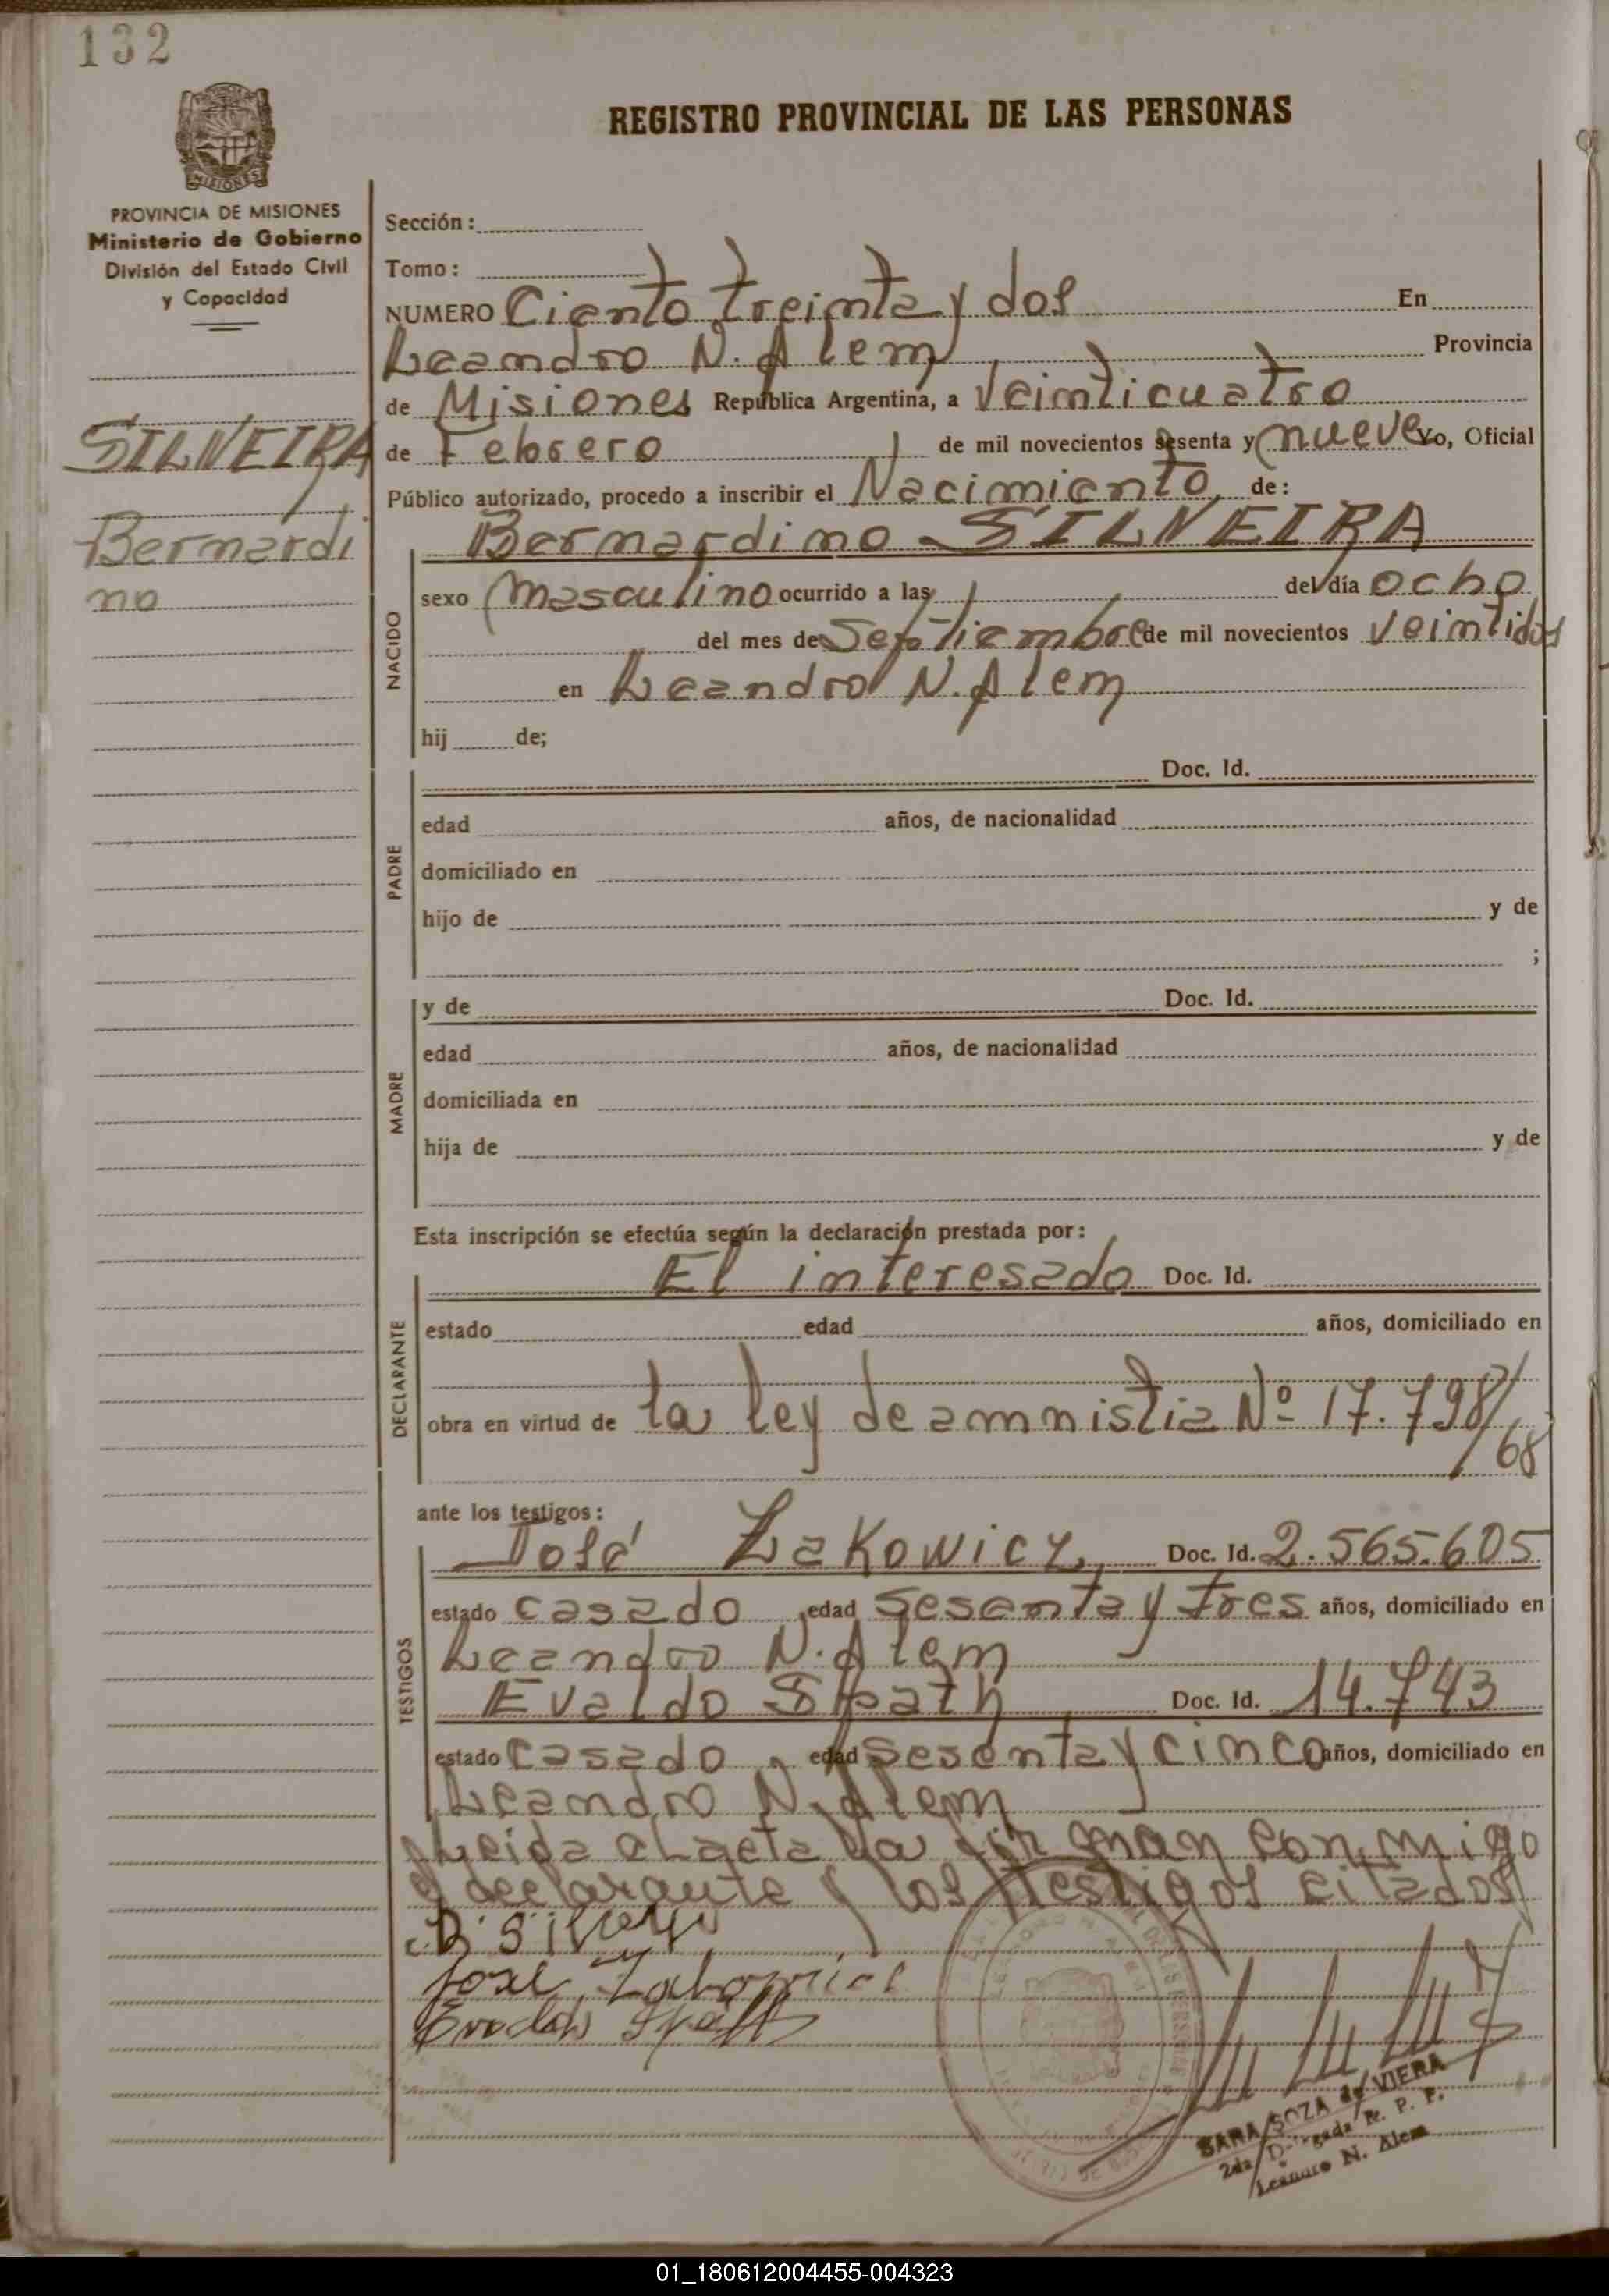 132
REGISTRO PROVINCIAL DE LAS PERSONAS
MISIONES
PROVINCIA DE MISIONES
Ministerio de Gobierno
División del Estado Civil
y Capacidad
SILVEIRA
Bernardi
no
Sección:
Tomo:
NUMERO Ciento treinta y dos En
Leandro N. Alem Provincia
de Misiones República Argentina, a Veinticuatro
de Febrero de mil novecientos sesenta y nueve Yo, Oficial
Público autorizado, procedo a inscribir el Nacimiento de:
NACIDO
Bernardino SILVEIRA
sexo masculino ocurrido a las del día ocho
del mes de Septiembre de mil novecientos veintidos
en Leandro N. Alem
hij de;
PADRE
Doc. Id.
edad años, de nacionalidad
domiciliado en
hijo de y de
;
MADRE
y de Doc. Id.
edad años, de nacionalidad
domiciliada en
hija de y de
Esta inscripción se efectúa según la declaración prestada por:
DECLARANTE
El interesado Doc. Id.
estado edad años, domiciliado en
obra en virtud de la ley de amnistia Nº 17.798/
/68
ante los testigos:
TESTIGOS
José Zakowicz, Doc. Id. 2.565.605
estado casado edad sesenta y tres años, domiciliado en
Leandro N. Alem
Evaldo Spath Doc. Id. 14.743
estado casado, edad sesenta y cinco años, domiciliado en
Leandro N. Alem
Leida el acta la firman conmigo
el declarante y los testigos citados
B. Silveira
José
Evaldo Spath
SARA SOZA de VIERA
2da. Delegada R. P. P.
Leandro N. Alem
01_180612004455-004323